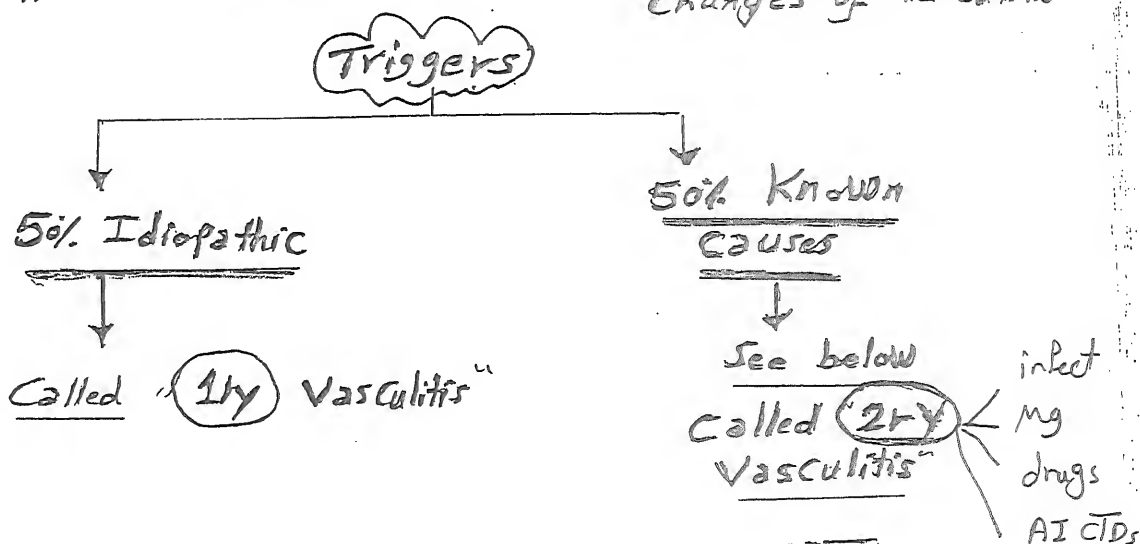 Changes of
Triggers
50% Idiopathic
Called "1ry Vasculitis"
50% Known
Causes
See below
Called "2ry
Vasculitis"
infect
Mg
drugs
AI CTDs